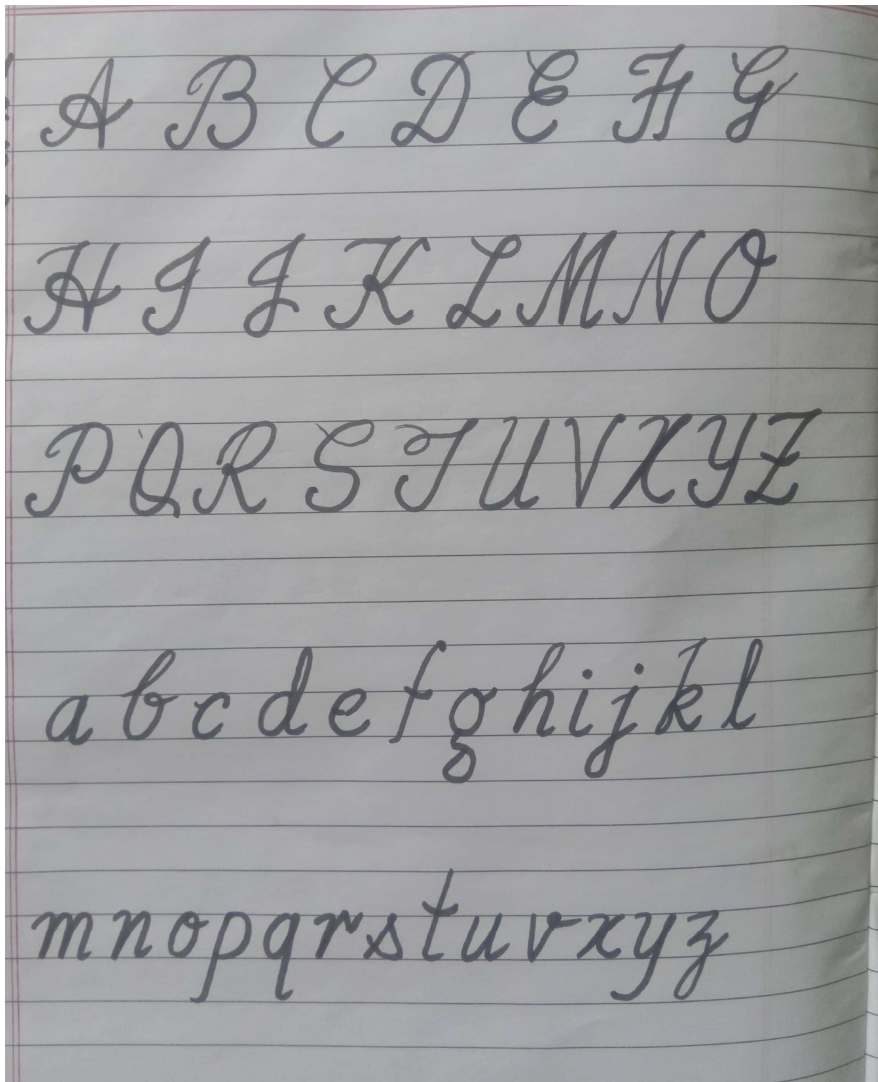 A B C D E F G
H I J K L M N O
P Q R S T U V X Y Z
a b c d e f g h i j k l
m n o p q r s t u v x y z